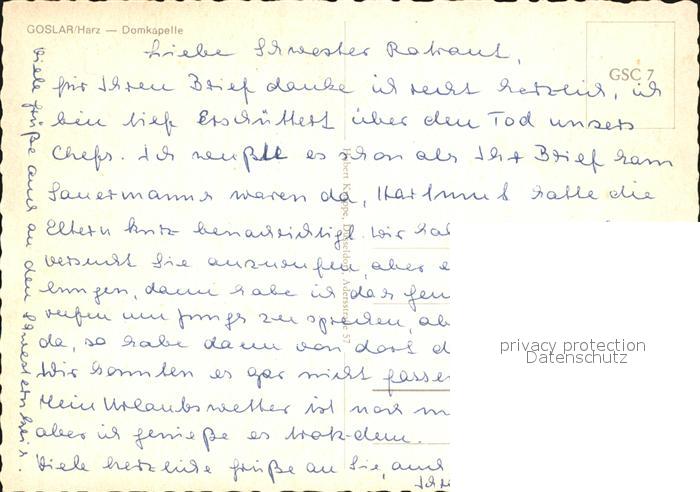 GOSLAR/Harz — Domkapelle
GSC 7
Liebe Schwester
für Ihren Brief danke ich recht herzlich, ich
bin tief Erschüttert über den Tod unsers
Chefs. Ich wußte es schon als Ihr Brief kam
Sauermanns waren da, Hartmut hatte die
Eltern kurz benachrichtigt. Wir
versucht Sie anzurufen, aber
dann habe ich das
um zu sprechen,
da, so habe dann von dort
Wir konnten es gar nicht
Mein Urlaubswetter ist noch
aber ich genieße es trotz-dem.
Viele herzliche grüße an Sie, auch
Viele grüße auch an den Schwesternkreis.
Düsseldorf, Adersstraße 57
privacy protection
Datenschutz